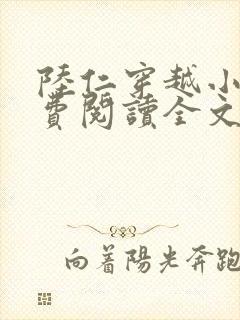 陸仁穿越小
費閱讀全文
向着陽光奔跑